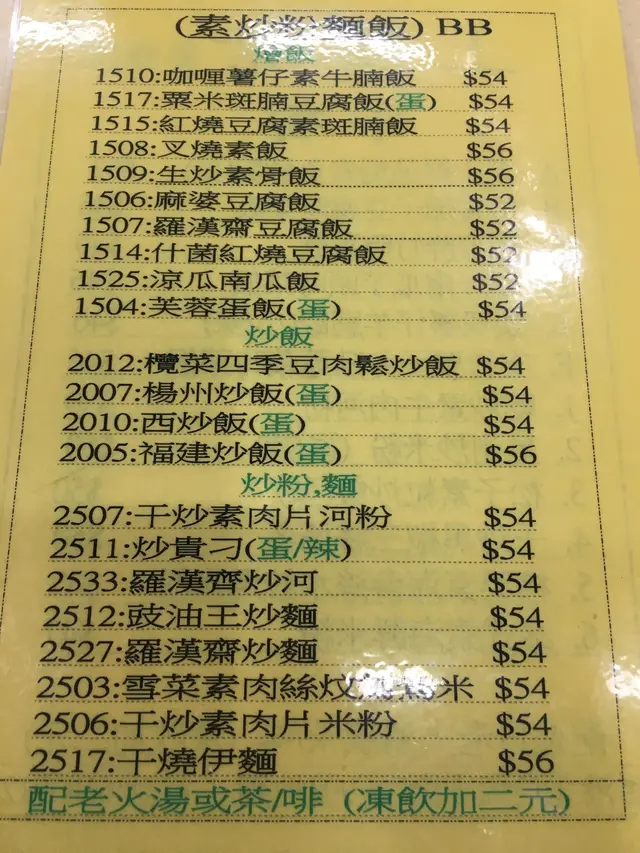 (素炒粉麵飯) BB
燴飯
1510:咖喱薯仔素牛腩飯 $54
1517:粟米斑腩豆腐飯(蛋) $54
1515:紅燒豆腐素斑腩飯 $54
1508:叉燒素飯 $56
1509:生炒素骨飯 $56
1506:麻婆豆腐飯 $52
1507:羅漢齋豆腐飯 $52
1514:什菌紅燒豆腐飯 $52
1525:涼瓜南瓜飯 $52
1504:芙蓉蛋飯(蛋) $54
炒飯
2012:欖菜四季豆肉鬆炒飯 $54
2007:楊州炒飯(蛋) $54
2010:西炒飯(蛋) $54
2005:福建炒飯(蛋) $56
炒粉,麵
2507:干炒素肉片河粉 $54
2511:炒貴刁(蛋/辣) $54
2533:羅漢齊炒河 $54
2512:豉油王炒麵 $54
2527:羅漢齋炒麵 $54
2503:雪菜素肉絲炆米 $54
2506:干炒素肉片米粉 $54
2517:干燒伊麵 $56
配老火湯或茶/啡 (凍飲加二元)